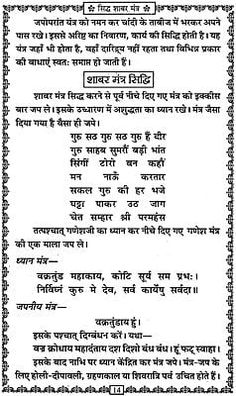 सिद्ध शाबर मंत्र
जपोपरांत यंत्र को नमन कर चांदी के ताबीज में भरकर अपने
पास रखे। इससे अरिष्ट का निवारण, कार्य की सिद्धि होती है। यह
यंत्र जहाँ भी होता है, वहाँ दारिद्र्य नहीं रहता तथा विभिन्न प्रकार
की बाधाएं स्वतः समाप्त हो जाती हैं।
शाबर मंत्र सिद्धि
शाबर मंत्र सिद्ध करने से पूर्व नीचे दिए गए मंत्र को इक्कीस
बार जप ले। इसके उच्चारण में अशुद्धता का ध्यान रखे। मंत्र जैसा
दिया गया है वैसा ही जपे।
गुरु सठ गुरु सठ गुरु हैं वीर
गुरु साहब सुमरौं बड़ी भांत
सिंगीं टोरों बन कहौं
मन नाऊँ करतार
सकल गुरु की हर भजे
घट्टा पाकर उठ जाग
चेत सम्हार श्री परमहंस
तत्पश्चात् गणेशजी का ध्यान कर नीचे दिए गए गणेश मंत्र
की एक माला जप ले।
ध्यान मंत्र—
वक्रतुंड महाकाय, कोटि सूर्य सम प्रभः।
निर्विघ्नं कुरु मे देव, सर्व कार्येषु सर्वदा॥
जपनीय मंत्र—
वक्रतुंडाय हुं।
इसके पश्चात् दिग्बंधन करें। यथा—
वज्र क्रोधाय महादंताय दश दिशो बंध बंध। हूं फट् स्वाहा।
इसके बाद नाभि पर ध्यान केंद्रित कर मंत्र जपे। मंत्र-जप के
लिए होली-दीपावली, ग्रहणकाल या शिवरात्रि पर्व उचित होते हैं।
14